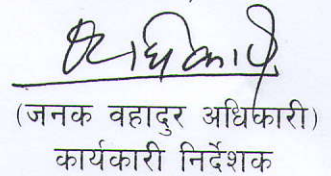 अधिकारी
(जनक वहादुर अधिकारी)
कार्यकारी निर्देशक